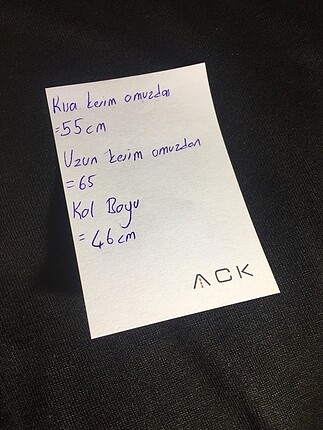 Kısa kesim omuzdan
=55cm
Uzun kesim omuzdan
=65
Kol Boyu
=46cm
ACK